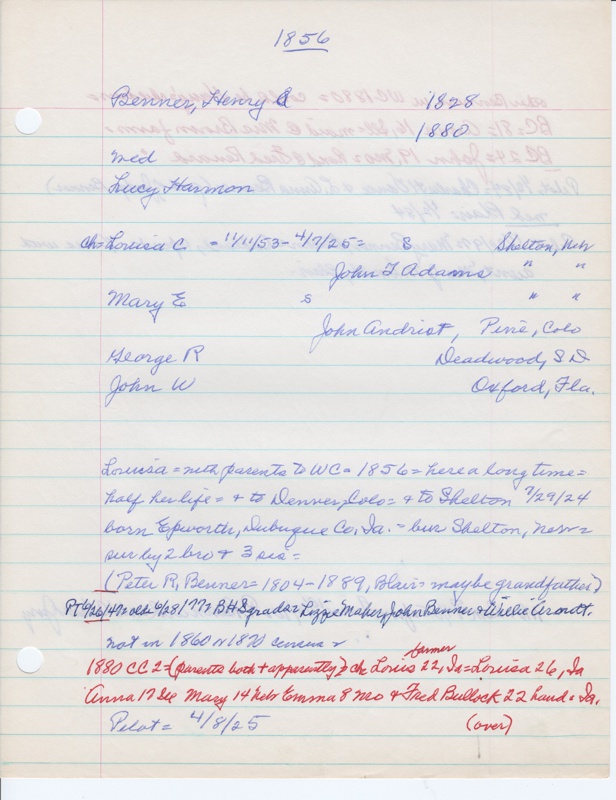 1856
Benner, Henry 1828
1880
med
Lucy Harmon
ch= Louisa C = 11/11/53 - 4/7/25 = 8 Shelton, Neb
John T Adams " "
Mary E s " "
John Andrist, Pine, Colo
George R Deadwood, S D
John W Oxford, Fla.
Louisa = with parents to WC = 1856 = here a long time =
half her life = + to Denver, Colo = + to Shelton 7/29/24
born Epworth, Dubuque Co, Ia. = bur Shelton, Neb =
sur by 2 bro + 3 sis =
(Peter R, Benner = 1804-1889, Blair = maybe grandfather)
PT 4/26/ 4/28/77 = BHS grads = Lizzie Maher, John Benner + Arndt.
not in 1860 or 1870 census =
farmer
1880 CC 2 = (parents both + apparently) = ch Louis 22, Ia = Louisa 26, Ia
Anna 17 Mary 14 Neb Emma 8 Mo + Fred Bullock 22 hand = Ia.
Pilot = 4/8/25 (over)